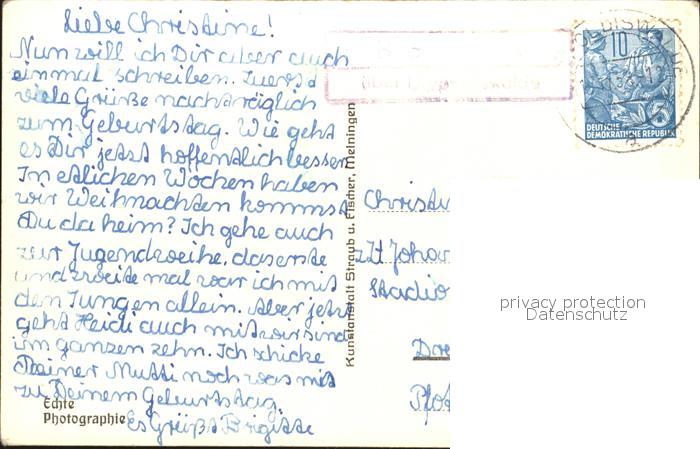 Liebe Christine!
Nun will ich Dir aber auch
einmal schreiben. Zuerst
viele Grüße nachträglich
zum Geburtstag. Wie geht
es Dir jetzt hoffentlich besser.
In etlichen Wochen haben
wir Weihnachten kommst
Du da heim? Ich gehe auch
zur Jugendweihe, das erste
und zweite mal war ich mit
den Jungen allein. Aber jetzt
geht Heidi auch mit wir sind
im ganzen zehn. Ich schicke
Deiner Mutti noch was mit
zu Deinem Geburtstag.
Es Grüßt Brigitte
Echte
Photographie
Kunstanstalt Straub u. Fischer, Meiningen
10
DEUTSCHE
DEMOKRATISCHE REPUBLIK
5
Christi
zZt Johan
Stadio
Dre
privacy protection
Datenschutz